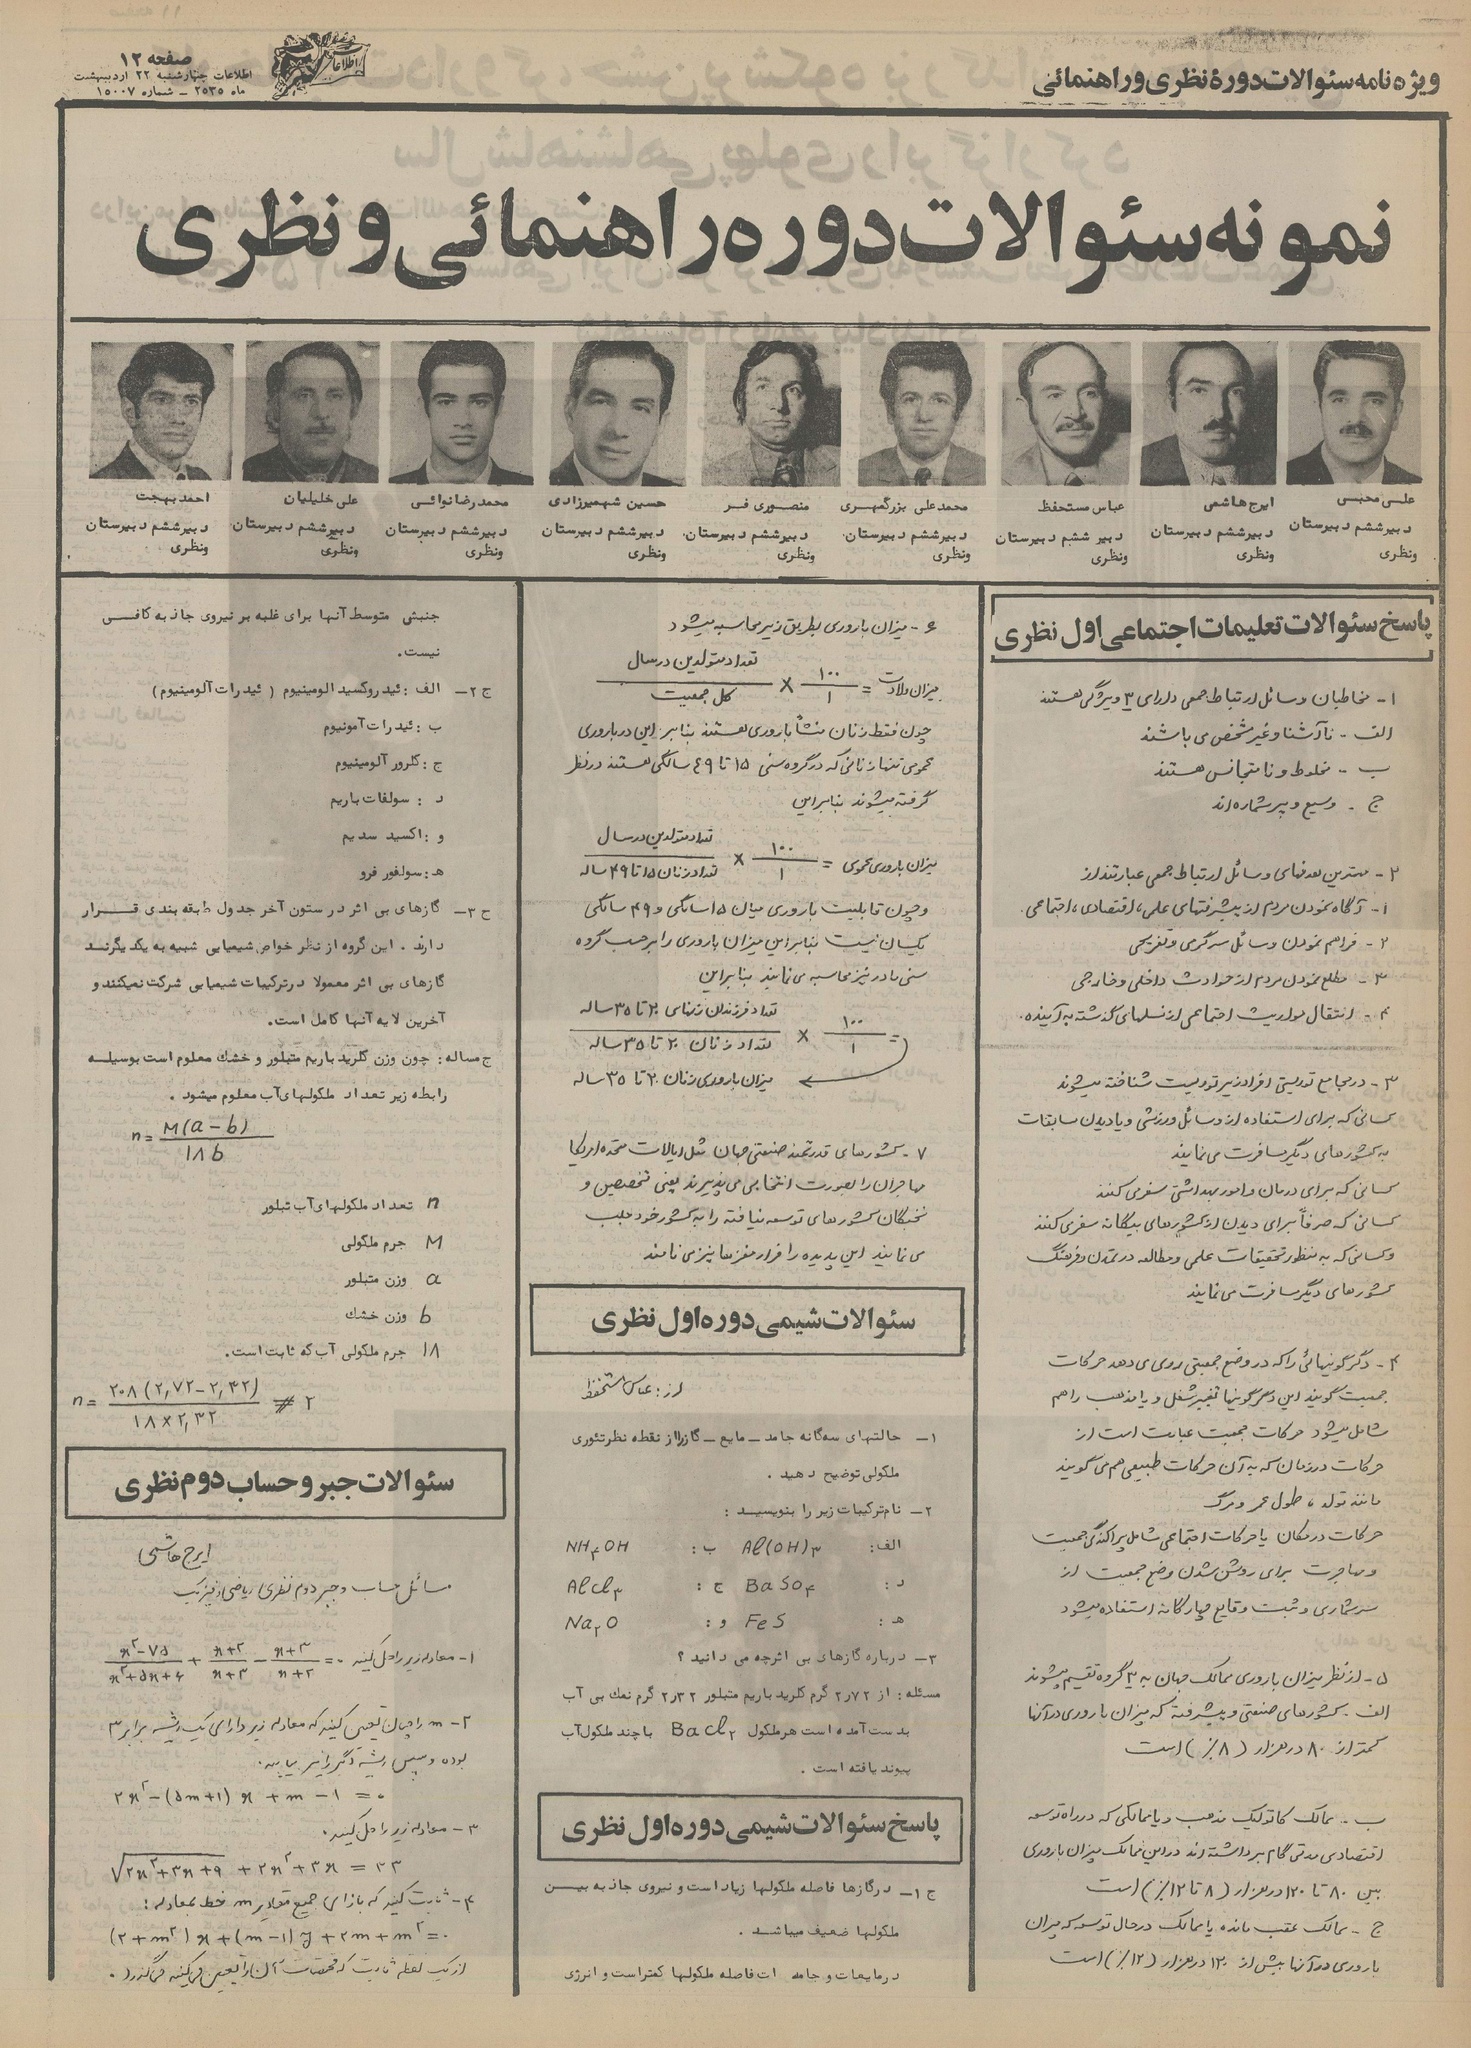 ویژه نامه سئوالات دورهٔ نظری و راهنمائی
صفحه ۱۲
اطلاعات چهارشنبه ۲۲ اردیبهشت
ماه ۲۵۳۵ - شماره ۱۵۰۰۷
اطلاعات
نمونه سئوالات دوره راهنمائی و نظری
علی محبسی
دبیر ششم دبیرستان
ونظری
ایرج هاشمی
دبیر ششم دبیرستان
ونظری
عباس مستحفظ
دبیر ششم دبیرستان
ونظری
محمدعلی بزرگمهری
دبیر ششم دبیرستان
ونظری
منصوری فر
دبیر ششم دبیرستان
ونظری
حسین شهمیرزادی
دبیر ششم دبیرستان
ونظری
محمدرضا نوائی
دبیر ششم دبیرستان
ونظری
علی خلیلیان
دبیر ششم دبیرستان
ونظری
احمد بهجت
دبیر ششم دبیرستان
ونظری
پاسخ سئوالات تعلیمات اجتماعی اول نظری
۱- مخاطبان وسائل ارتباط جمعی دارای ۳ ویژگی هستند
الف - ناآشنا و غیر مشخص می باشند
ب - مخلوط و نامتجانس هستند
ج - وسیع و پرشماره اند
۲- مهترین هدفهای وسائل ارتباط جمعی عبارتند از
۱- آگاه نمودن مردم از پیشرفتهای علمی، اقتصادی، اجتماعی.
۲- فراهم نمودن وسائل سرگرمی و تفریحی
۳- مطلع نمودن مردم از حوادث داخلی و خارجی
۴- انتقال مواریث اجتماعی از نسلهای گذشته به آینده.
۳- در مجامع توریستی افراد زیر توریست شناخته میشوند
کسانی که برای استفاده از وسائل ورزشی و یا دیدن مسابقات
به کشورهای دیگر مسافرت می نمایند
کسانی که برای درمان و امور بهداشتی سفر می کنند
کسانی که صرفاً برای دیدن از کشورهای بیگانه سفر می کنند
وکسانی که به منظور تحقیقات علمی و مطالعه در تمدن و فرهنگ
کشورهای دیگر مسافرت می نمایند
۴- دگرگونیهائی را که در وضع جمعیتی روی می دهد حرکات
جمعیت گویند این دگرگونیها تغییر شغل و یا مذهب را هم
شامل میشود حرکات جمعیت عبارت است از
حرکات در زمان که به آن حرکات طبیعی هم می گویند
مانند تولد، طول عمر و مرگ
حرکات در مکان یا حرکات اجتماعی شامل پراکندگی جمعیت
و مهاجرت برای روشن شدن وضع جمعیت از
سرشماری و ثبت وقایع چهارگانه استفاده میشود
۵- از نظر میزان باروری ممالک جهان به ۳ گروه تقسیم میشوند
الف - کشورهای صنعتی و پیشرفته که میزان باروری در آنها
کمتر از ۸۰ در هزار (۸٪) است
ب - ممالک کاتولیک مذهب و یا ممالکی که در راه توسعه
اقتصادی مدتی گام برداشته اند در این ممالک میزان باروری
بین ۸۰ تا ۱۲۰ در هزار (۸ تا ۱۲٪) است
ج - ممالک عقب مانده یا ممالک در حال توسعه که میزان
باروری در آنها بیش از ۱۲۰ در هزار (۱۲٪) است
۶- میزان باروری بطریق زیر محاسبه میشود
میزان ولادت = ۱۰۰/۱ × تعداد متولدین در سال / کل جمعیت
چون فقط زنان منشأ باروری هستند بنابر این در باروری
عمومی تنها زنانی که در گروه سنی ۱۵ تا ۴۹ سالگی هستند در نظر
گرفته میشوند بنابر این
میزان باروری عمومی = ۱۰۰/۱ × تعداد متولدین در سال / تعداد زنان ۱۵ تا ۴۹ ساله
و چون قابلیت باروری میان ۱۵ سالگی و ۴۹ سالگی
یکسان نیست بنابر این میزان باروری را بر حسب گروه
سنی مادر نیز محاسبه می نمایند بنابر این
= ۱۰۰/۱ × تعداد فرزندان زنهای ۲۰ تا ۳۵ ساله / تعداد زنان ۲۰ تا ۳۵ ساله
میزان باروری زنان ۲۰ تا ۳۵ ساله
۷- کشورهای قدرتمند صنعتی جهان مثل ایالات متحده امریکا
مهاجران را بصورت انتخابی می پذیرند یعنی متخصصین و
نخبگان کشورهای توسعه نیافته را به کشور خود جلب
می نمایند این پدیده را فرار مغزها نیز می نامند
سئوالات شیمی دوره اول نظری
از: عباس مستحفظ
۱- حالتهای سه گانه جامد - مایع - گاز را از نقطه نظر تئوری
ملکولی توضیح دهید .
۲- نام ترکیبات زیر را بنویسید :
الف: Al(OH)۳ ب: NH۴OH
د: BaSO۴ ج: AlCl۳
هـ: FeS و: Na۲O
۳- درباره گازهای بی اثر چه می دانید ؟
مسئله: از ۲٫۷۲ گرم کلرید باریم متبلور ۲٫۳۲ گرم نمك بی آب
بدست آمده است هر ملکول BaCl۲ با چند ملکول آب
پیوند یافته است .
پاسخ سئوالات شیمی دوره اول نظری
ج۱- در گازها فاصله ملکولها زیاد است و نیروی جاذبه بین
ملکولها ضعیف میباشد .
در مایعات و جامدات فاصله ملکولها کمتر است و انرژی
جنبشی متوسط آنها برای غلبه بر نیروی جاذبه کافی
نیست.
ج۲- الف: ئیدروکسید الومینیوم ( ئیدرات آلومینیوم )
ب: ئیدرات آمونیوم
ج: کلرور آلومینیوم
د: سولفات باریم
و: اکسید سدیم
هـ: سولفور فرو
ح۳- گازهای بی اثر در ستون آخر جدول طبقه بندی قرار
دارند . این گروه از نظر خواص شیمیایی شبیه به یکدیگرند
گازهای بی اثر معمولا در ترکیبات شیمیایی شرکت نمیکنند و
آخرین لایه آنها کامل است.
ج مساله: چون وزن کلرید باریم متبلور و خشك معلوم است بوسیله
رابطه زیر تعداد ملکولهای آب معلوم میشود .
n = M(a-b) / ۱۸b
n تعداد ملکولهای آب تبلور
M جرم ملکولی
a وزن متبلور
b وزن خشك
۱۸ جرم ملکولی آب که ثابت است.
n = ۲۰۸(۲٫۷۲-۲٫۳۲) / ۱۸×۲٫۳۲ ≠ ۲
سئوالات جبر و حساب دوم نظری
ایرج هاشمی
مسائل حساب و جبر دوم نظری ریاضی فیزیک
۱- معادله زیر را حل کنید x+۳/x+۲ - x+۲/x+۳ + x۲-۷۵/x۲+۵x+۶ = ۰
۲- m را چنان تعیین کنید که معادله زیر دارای یک ریشه برابر ۳
بوده و سپس ریشه دیگر را نیز بیابید.
۲x۲-(۵m+۱)x+m-۱=۰
۳- معادله زیر را حل کنید.
√۲x۲+۳x+۹ + ۲x۲+۳x = ۳۳
۴- ثابت کنید که بازای جمیع مقادیر m خط بمعادله:
(۲+m۲)x+(m-۱)y+۲m+m۲=۰
از یک نقطه ثابت که مختصات آن را تعیین میکنید میگذرد.